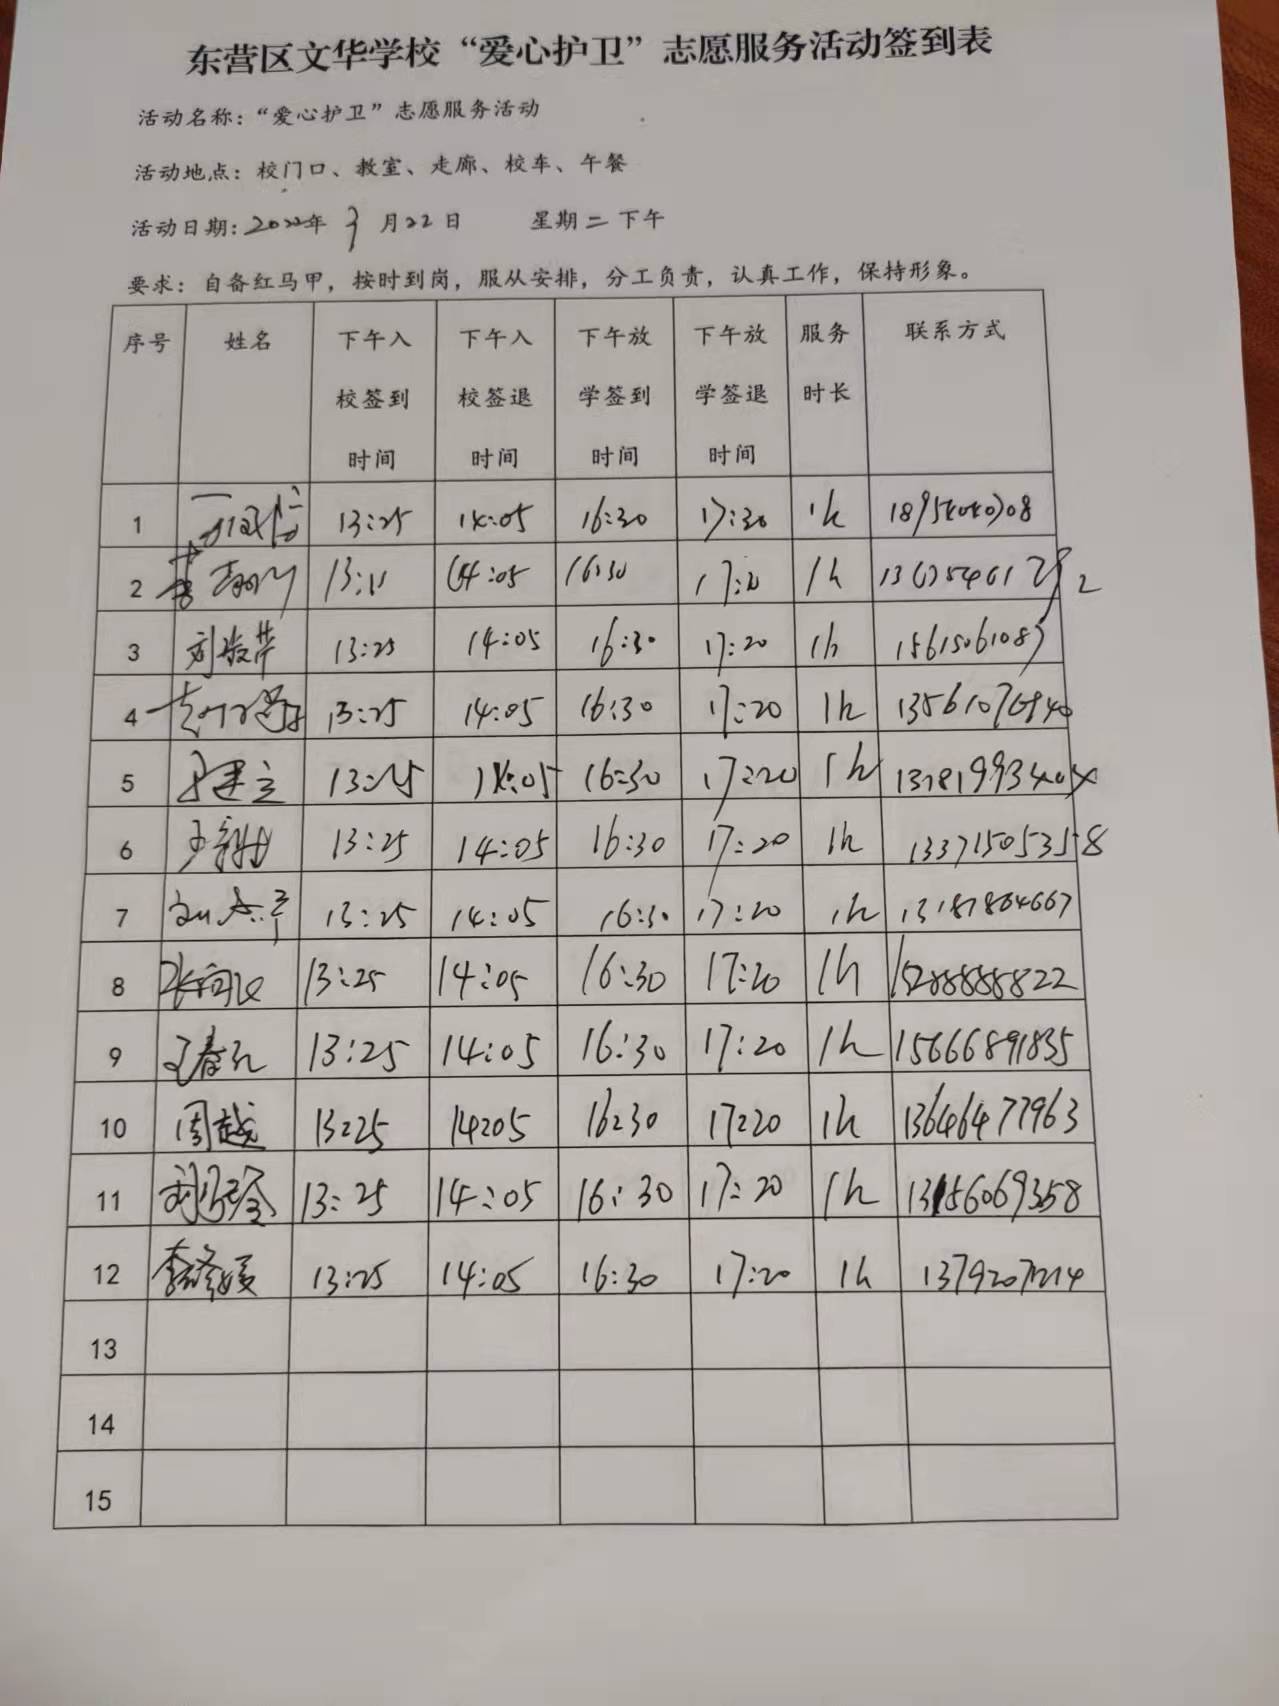 东营区文华学校“爱心护卫”志愿服务活动签到表
活动名称：“爱心护卫”志愿服务活动
活动地点：校门口、教室、走廊、校车、午餐
活动日期：2022年 3 月22日 星期二下午
要求：自备红马甲，按时到岗，服从安排，分工负责，认真工作，保持形象。
序号 姓名 下午入校签到时间 下午入校签退时间 下午放学签到时间 下午放学签退时间 服务时长 联系方式
1 13:25 14:05 16:30 17:30 1h
2 14:05 16:30 1h
3 13:25 14:05 16:30 17:20 1h 15615061087
4 13:25 14:05 16:30 17:20 1h
5 13:25 14:05 16:30 17:20 1h
6 13:25 14:05 16:30 17:20 1h 13371505358
7 13:25 14:05 16:30 17:20 1h 13181864667
8 13:25 14:05 16:30 17:20 1h 15288888822
9 13:25 14:05 16:30 17:20 1h 15666891835
10 周越 13:25 14:05 16:30 17:20 1h 13646477963
11 13:25 14:05 16:30 17:20 1h
12 李修媛 13:25 14:05 16:30 17:20 1h
13
14
15